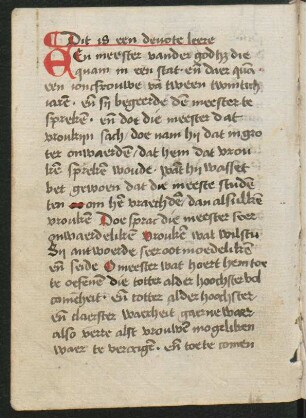 Dit is een deuote leere
Een meester vander godh3 die
quam in een stat · en̄ daer quā
een ioncfrouwe vā tween twintich
iaren · en̄ sij begeerde dē meester te
spreken · en̄ dot die meester dat
vroukijn sach / doe nam hij dat in gro
ter onwaerden / dat hem dat vrou
ken spreken woude · wāt hij was het
bet gewoen dat die meeste studē
ten om hē vraechdē / dan alsulken
vrouken Doe sprac die meester seer
onwaerdeliken Vrouken wat wilstu
Sij antwoerde seer ootmoedeliken
en̄ seide O meester wat hoert hem toe
te oefenen die totter alder hoochster vol
comēheit · En̄ totter alder hoochster
en̄ claerster waerheit gaerne waer
also verre alst vrouwen mogeliken
waer te vercrigen · en̄ toe te comen